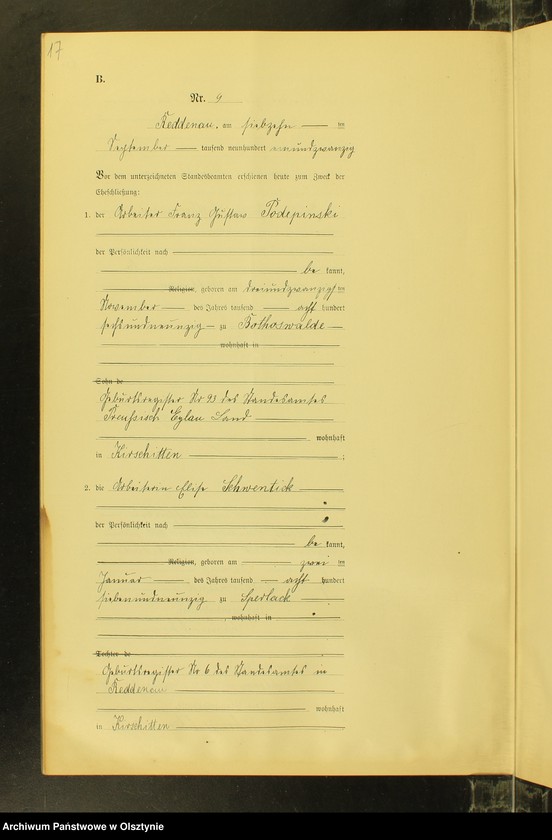 17
B.
Nr. 9
Reddenau, am siebzehn ten
September tausend neunhundert neunundzwanzig
Vor dem unterzeichneten Standesbeamten erschienen heute zum Zweck der
Eheschließung:
1. der Arbeiter Franz Gustav Podepinski
der Persönlichkeit nach
be kannt,
Religion, geboren am dreiundzwanzigsten
November des Jahres tausend acht hundert
sechsundneunzig zu Bothaswalde
wohnhaft in
Sohn de
Geburtsregister Nr 93 des Standesamtes
Preußisch Eylau Land
, wohnhaft
in Kirschitten ;
2. die Arbeiterin Elise Schwentick
der Persönlichkeit nach
be kannt,
Religion, geboren am zwei ten
Januar des Jahres tausend acht hundert
siebenundneunzig zu Sperlack
, wohnhaft in
Tochter de
Geburtsregister Nr 6 des Standesamtes in
Reddenau
, wohnhaft
in Kirschitten
Archiwum Państwowe w Olsztynie